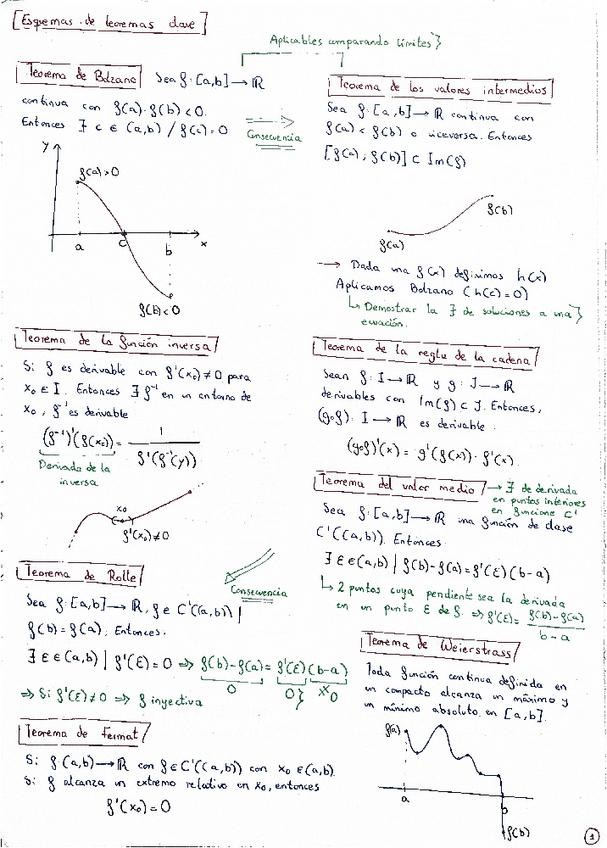 Esquemas de teoremas clave
Aplicables comparando límites
Teorema de Bolzano Sea f:[a,b]→ℝ
continua con f(a)·f(b)<0.
Entonces ∃ c ∈ (a,b) / f(c)=0
Consecuencia
y
f(a)>0
a
c
b
x
f(b)<0
Teorema de los valores intermedios
Sea f:[a,b]→ℝ continua con
f(a)<f(b) o viceversa. Entonces
[f(a), f(b)] ⊂ Im(f)
f(b)
f(a)
→ Dada una f(x) definimos h(x)
Aplicamos Bolzano (h(c)=0)
↳ Demostrar la ∃ de soluciones a una
ecuación.
Teorema de la función inversa
Si f es derivable con f'(x₀)≠0 para
x₀ ∈ I. Entonces ∃ f⁻¹ en un entorno de
x₀, f⁻¹ es derivable
(f⁻¹)'(f(x₀)) = 1 / f'(f⁻¹(y))
Derivada de la
inversa
x₀
f'(x₀)≠0
Teorema de la regla de la cadena
Sean f: I→ℝ y g: J→ℝ
derivables con Im(f) ⊂ J. Entonces,
(g∘f): I→ℝ es derivable:
(g∘f)'(x) = g'(f(x))·f'(x)
Teorema del valor medio → ∃ de derivada
en puntos interiores
en funciones C¹
Sea f:[a,b]→ℝ una función de clase
C¹((a,b)). Entonces:
∃ ξ ∈ (a,b) | f(b)-f(a)=f'(ξ)(b-a)
↳ 2 puntos cuya pendiente sea la derivada
en un punto ξ de f. ⇒ f'(ξ) = f(b)-f(a) / b-a
Teorema de Rolle
Consecuencia
Sea f:[a,b]→ℝ, f ∈ C¹((a,b)) |
f(b)=f(a). Entonces.
∃ ξ ∈ (a,b) | f'(ξ)=0 ⇒ f(b)-f(a)=f'(ξ)(b-a)
0 0
⇒ Si f'(ξ)≠0 ⇒ f inyectiva
Teorema de Fermat
Si f:(a,b)→ℝ con f ∈ C¹((a,b)) con x₀ ∈ (a,b).
Si f alcanza un extremo relativo en x₀, entonces
f'(x₀)=0
Teorema de Weierstrass
Toda función continua definida en
un compacto alcanza un máximo y
un mínimo absoluto en [a,b].
f(a)
a
b
f(b)
1